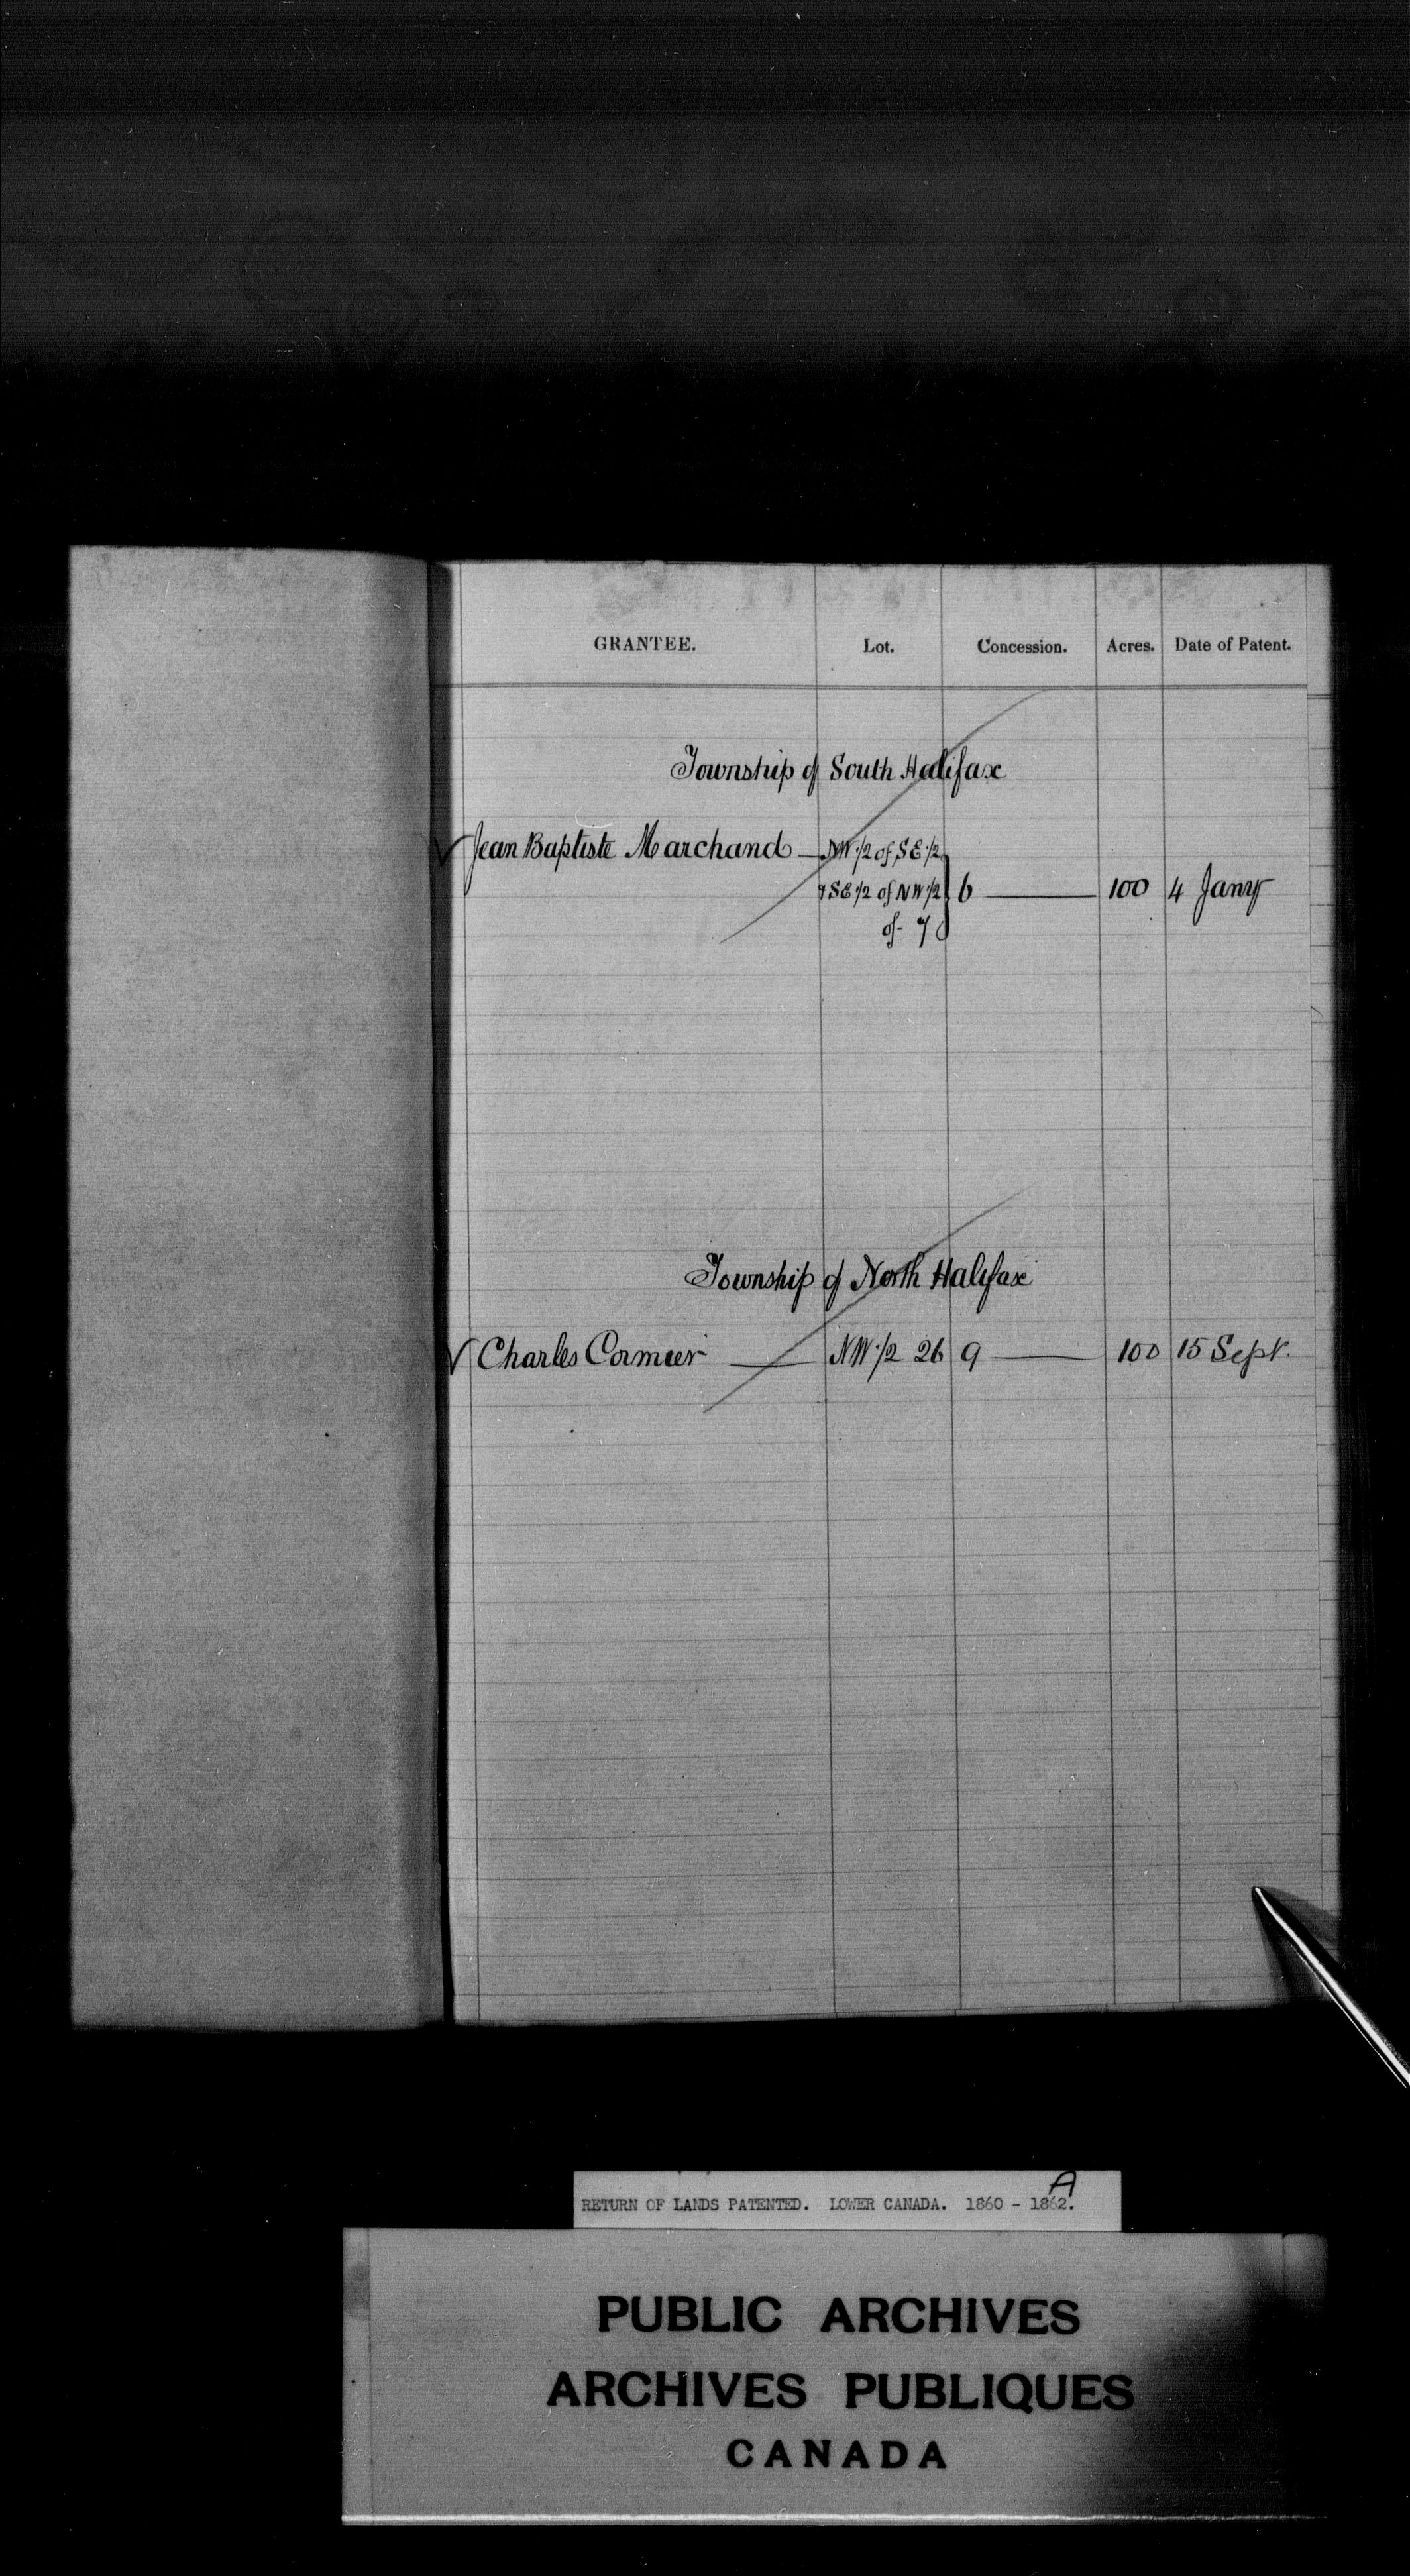 GRANTEE. Lot. Concession. Acres. Date of Patent.
Township of South Halifax
Jean Baptiste Marchand — NW 1/2 of SE 1/2
& SE 1/2 of NW 1/2 6 — 100 4 Jany
of 7
Township of North Halifax
Charles Cormier — NW 1/2 26 9 — 100 15 Sept.
A
RETURN OF LANDS PATENTED. LOWER CANADA. 1860 - 1862.
PUBLIC ARCHIVES
ARCHIVES PUBLIQUES
CANADA